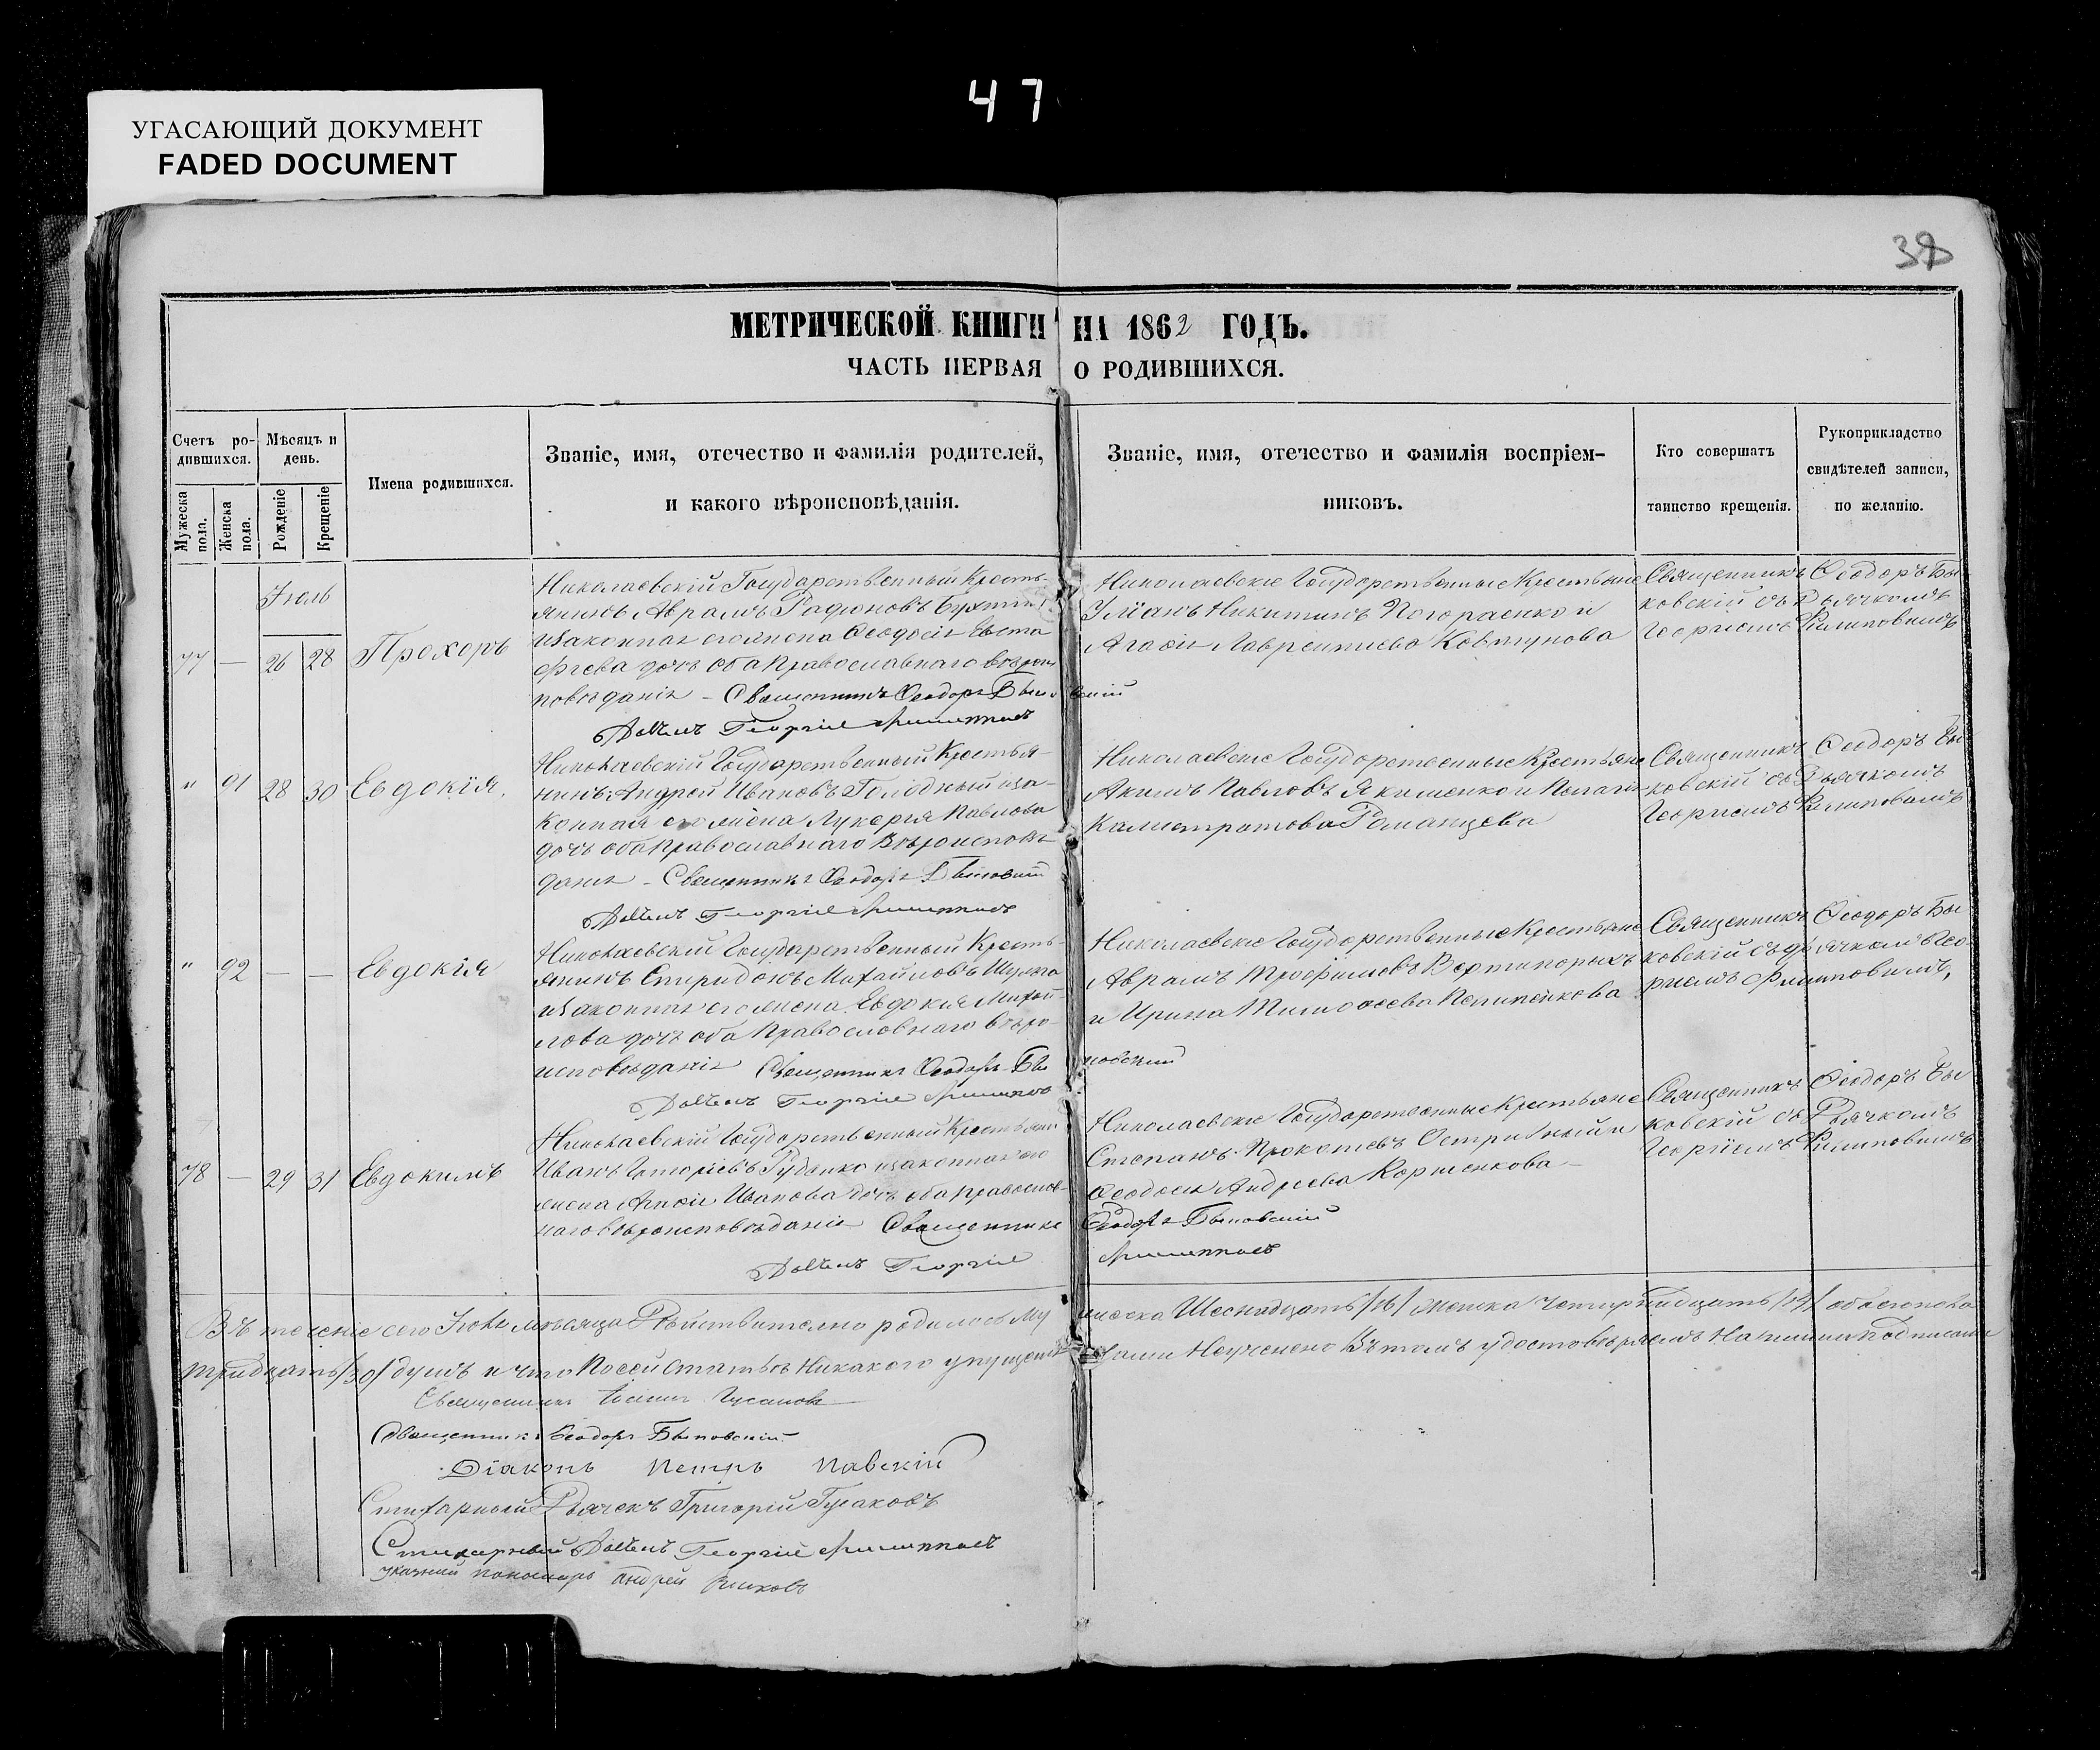 47
УГАСАЮЩИЙ ДОКУМЕНТ
FADED DOCUMENT
38
МЕТРИЧЕСКОЙ КНИГИ НА 1862 ГОДЪ.
ЧАСТЬ ПЕРВАЯ О РОДИВШИХСЯ.
Счетъ ро-
дившихся.
Мужеска
пола.
Женска
пола.
Мѣсяцъ и
день.
Рожденіе
Крещеніе
Имена родившихся.
Званіе, имя, отечество и фамилія родителей,
и какого вѣроисповѣданія.
Званіе, имя, отечество и фамилія воспріем-
никовъ.
Кто совершатъ
таинство крещенія.
Рукоприкладство
свидѣтелей записи,
по желанію.
Іюль
77 — 26 28 Прохоръ
Николаевскій Государственный Кресть-
янинъ Аврамъ Радіоновъ
изаконная его жена Ѳеодосія Евста
фіева дочь оба Православнаго вѣроис
повѣданія – Священникъ Ѳеодоръ Быковскій
Дьячекъ Георгіе Филипповъ
Николаевскіе Государственные Крестьяне
Уліанъ Никитинъ и
Агафія Лаврентіева Ковтунова
Священникъ Ѳеодоръ Бы
ковскій съ Дьячкомъ
Георгіемъ Филиповымъ
" 91 28 30 Евдокія.
Николаевскій Государственный Крестья-
нинъ Андрей Ивановъ Голодный иза-
конная его жена Лукерія Павлова
дочь оба Православнаго Вѣроисповѣ
данія – Священникъ Ѳеодоръ Быковскій
Дьячекъ Георгіе Филипповъ
Николаевскіе Государственные Крестьяне
Акимъ Павловъ Якименко и Пелагія
Калистратова Романцева
Священникъ Ѳеодоръ Бы
ковскій съ Дьячкомъ
Георгіемъ Филиповымъ
" 92 — — Евдокія
Николаевскій Государственный Кресть-
янинъ Спиридонъ Михайловъ Шулга
изаконная его жена Евдокія Михай
лова дочь оба Православнаго Вѣро-
исповѣданія Священникъ Ѳеодоръ Быковскій
Дьячекъ Георгіе Филипповъ
Николаевскіе Государственные Крестьяне
Аврамъ Трофимовъ
и Ирина Тимофеева
Священникъ Ѳеодоръ Бы
ковскій съ дьячкомъ Гео
ргіемъ Филиповымъ,
78 — 29 31 Евдокимъ
Николаевскій Государственный Крестьяни
Иванъ Григоріевъ Руденко изаконная его
жена Агафія Иванова дочь оба православ-
наго вѣроисповѣданія Священникъ Ѳеодоръ Быковскій
Дьячекъ Георгіе Филипповъ
Николаевскіе Государственные Крестьяне
Степанъ Прокопіевъ и
Ѳеодосія Андреева Корніенкова
Священникъ Ѳеодоръ Бы
ковскій съ Дьячкомъ
Георгіемъ Филиповымъ
Въ теченіе сего Іюля мѣсяца Дѣйствително родилось Му жеска Шеснадцать /16/ женска четырнадцать /14/ обаего пола
тридцать /30/ душъ и что Посей Статьѣ Никакого упущенія Нами Неучинено Вътомъ удостовѣряемъ Нашими Подписами
Священникъ
Священникъ Ѳеодоръ Быковскій
Діаконъ Петръ Павскій
Стихарный Дьячекъ Григорій Гусаковъ
Стихарный Дьячекъ Георгій Филипповъ
указный пономарь Андрей